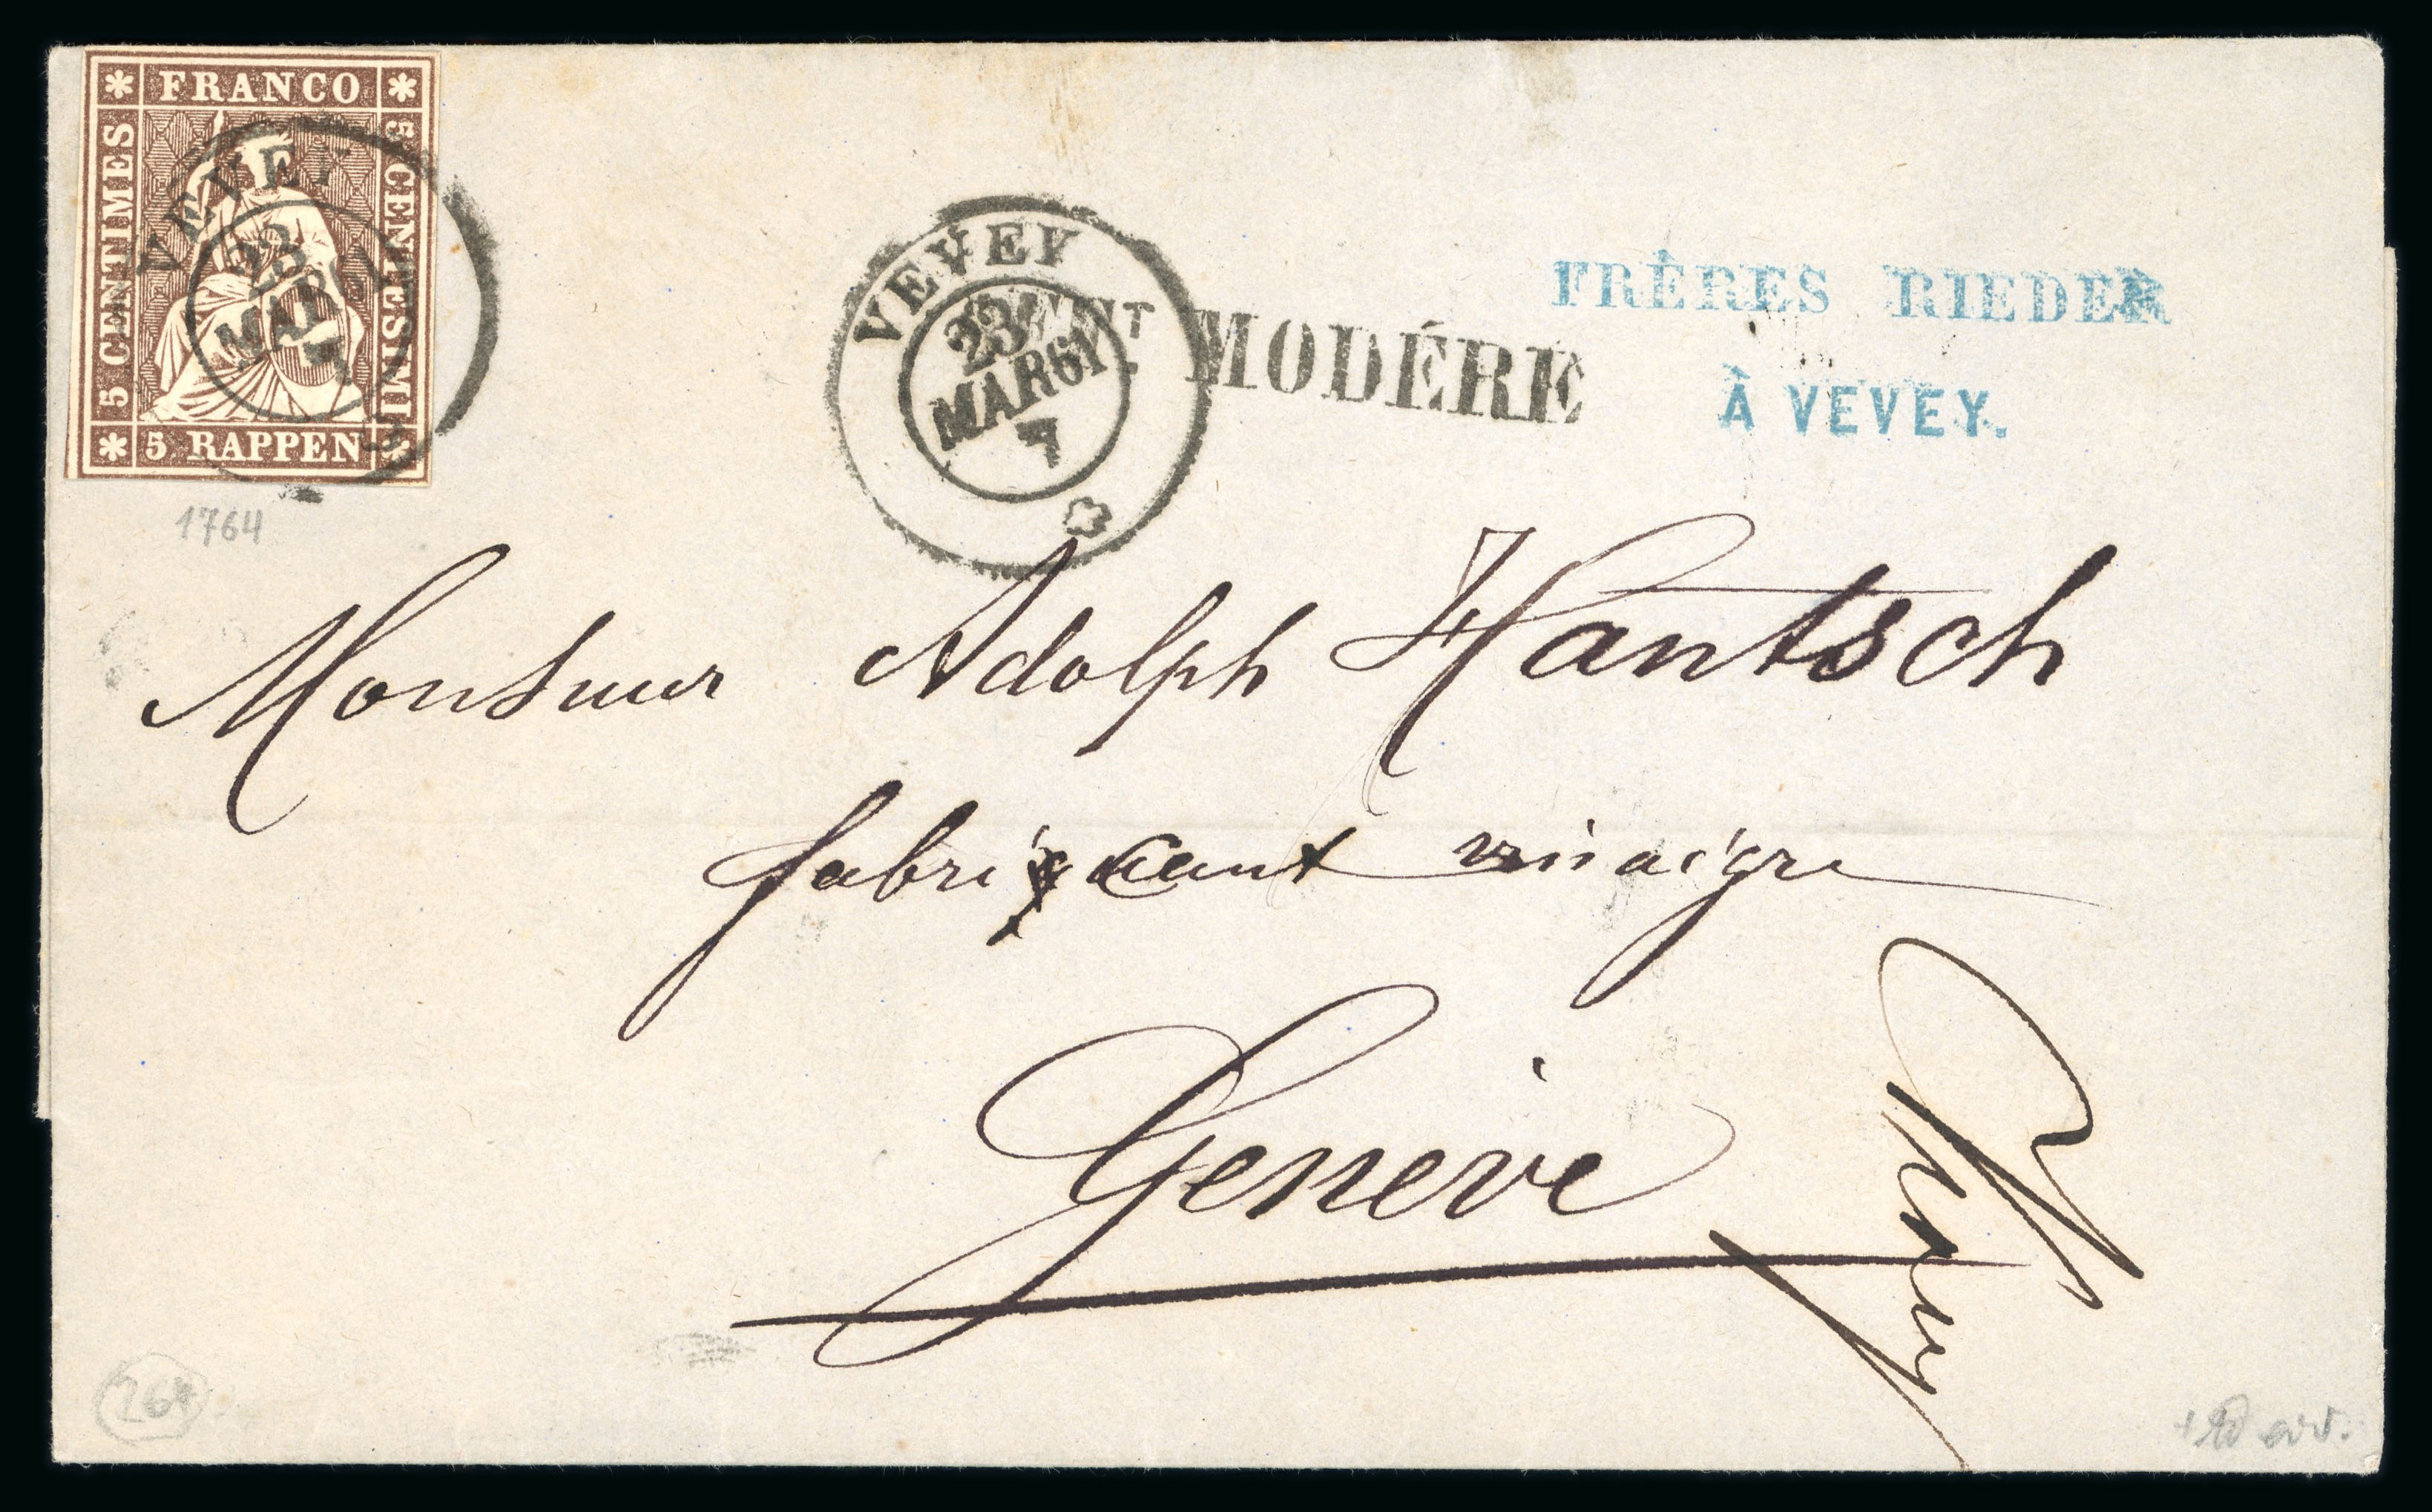 FRANCO
5 CENTIMES
5 CENTESIMI
5 RAPPEN
VEVEY
23
MAR 61
7
VEVEY
23
MAR 61
7
MODÉRÉ
FRÈRES RIEDER
À VEVEY.
1764
Monsieur Adolph Hantsch
fabriquant vinaigre
Genève